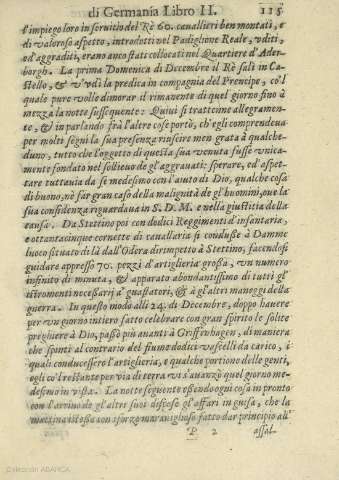 di Germania Libro II. 115
l'impiego loro in seruitio del Rè 60. cauallieri ben montati, e
di valoroso aspetto, introdotti nel Padiglione Reale, vditi,
ed aggraditi, erano anco stati collocati nel Quartiere d'Ader-
borgh. La prima Domenica di Decembre il Rè salì in Ca-
stello, & v'vdì la predica in compagnia del Prencipe, co'l
quale pure volle dimorar il rimanente di quel giorno fino à
mezza la notte sussequente: Quiui si trattenne allegramen-
te, & in parlando frà l'altre cose portò, ch'egli comprendeua
per molti segni la sua presenza riuscire men grata à qualche-
duno, tutto che l'oggetto di questa sua venuta fusse vnica-
mente fondato nel sollieuo de gl'aggrauati: sperare, ed aspet-
tare tuttauia da se medesimo con l'aiuto di Dio, qualche cosa
di buono, nè far gran caso della malignità de gl'huomini, que la
sua confidenza riguardaua in S. D. M. e nella giustitia della
causa. Da Stettino poi con dodici Reggimenti d'infantaria,
e ottantacinque cornette di cauallaria si condusse à Damme
luoco situato di là dall'Odera dirimpetto à Stettino, facendosi
guidare appresso 70. pezzi d'artiglieria grossa, vn numero
infinito di minuta, & apparato abondantissimo di tutti gl'
istromenti necessarij a' guastatori, & à gl'altri maneggi della
guerra. In questo modo alli 24. di Decembre, doppo hauere
per vn giorno intiero fatto celebrare con gran spirito le solite
preghiere à Dio, passò più auanti à Griffenhagen, di maniera
che spinti al contrario del fiume dodici vascelli da carico, i
quali conducessero l'artiglieria, e qualche portione delle genti,
egli co'l restante per via di terra vi s'auanzò quel giorno me-
desimo in vista. La notte seguente essendo ogni cosa in pronto
con l'arriuo de gl'altri suoi dispose gl'affari in guisa, che la
mattina istessa con sforzo marauiglioso fatto dar principio all'
P 2 assal-
Colección ABANCA